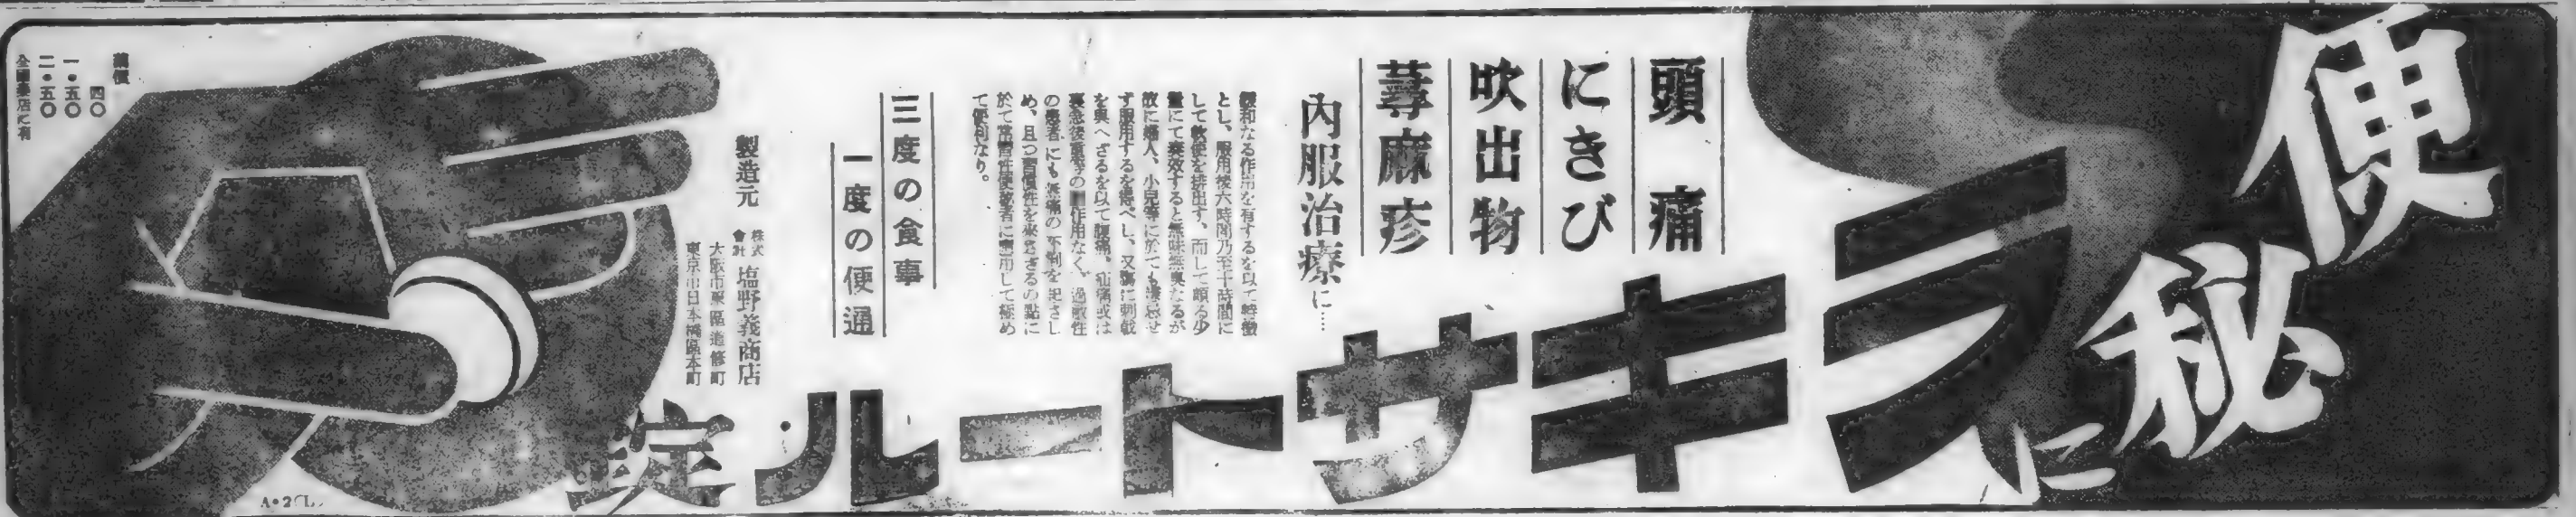 便秘に
ラキサトール錠
頭痛
にきび
吹出物
蕁麻疹
内服治療に…
緩和なる作用を有するを以て特徴
とし、服用後六時間乃至十時間に
して軟便を排出す、而して頗る少
量にて奏效すると無味無臭なるが
故に婦人、小兒等に於ても嫌忌せ
ず服用するを得べし、又腸に刺戟
を與へざるを以て腹痛、疝痛或は
裏急後重等の作用なく、過敏性
の患者にも疼痛の不利を起さし
め、且つ習慣性を來さざるの點に
於て常習性便秘者に應用して極め
て便利なり。
三度の食事
一度の便通
製造元 株式會社 塩野義商店
大阪市東區道修町
東京市日本橋區本町
藥價
四〇
一・五〇
二・五〇
全國藥店に有